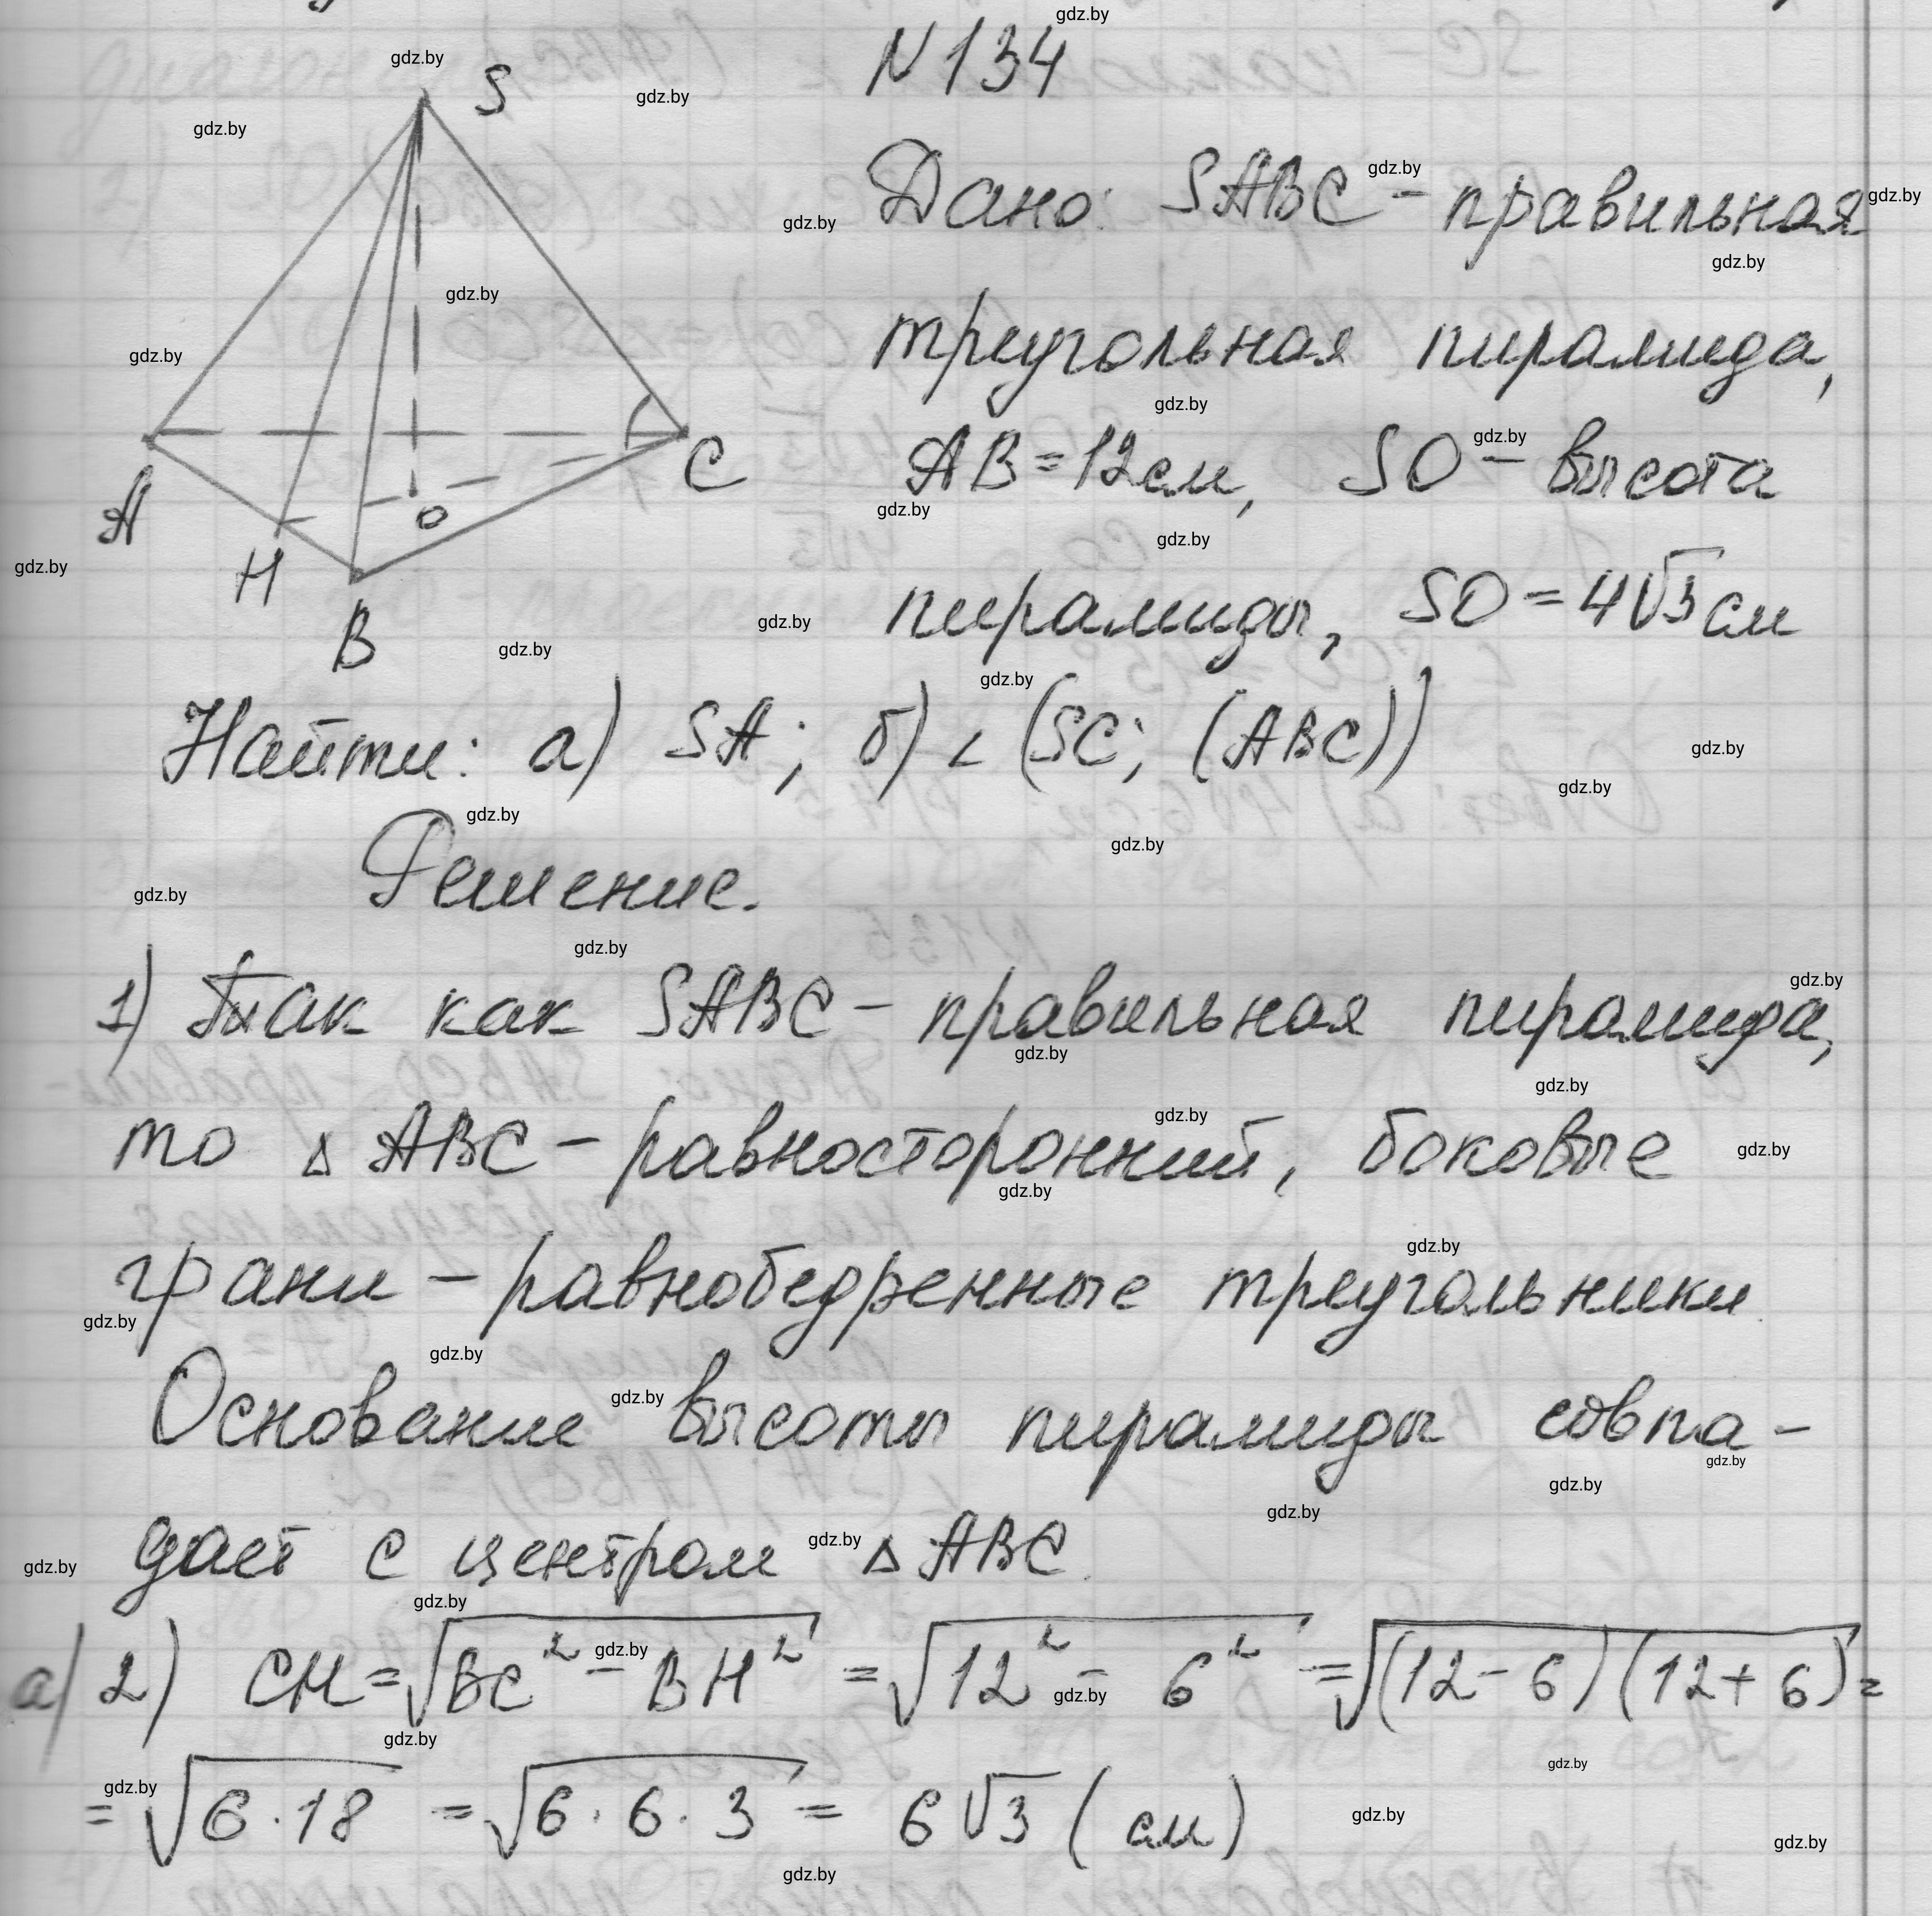 N134
S
Дано: SABC - правильная
треугольная пирамида,
AB = 12 см, SO - высота
пирамиды, SO = 4√3 см
A
H
B
O
C
Найти: а) SA; б) ∠ (SC; (ABC))
Решение.
1) Так как SABC - правильная пирамида,
то △ ABC - равносторонний, боковые
грани - равнобедренные треугольники
Основание высоты пирамиды совпа-
дает с центром △ ABC.
а) 2) CH = √(BC² - BH²) = √(12² - 6²) = √((12 - 6)(12 + 6)) =
= √(6 · 18) = √(6 · 6 · 3) = 6√3 (см)
gdz.by